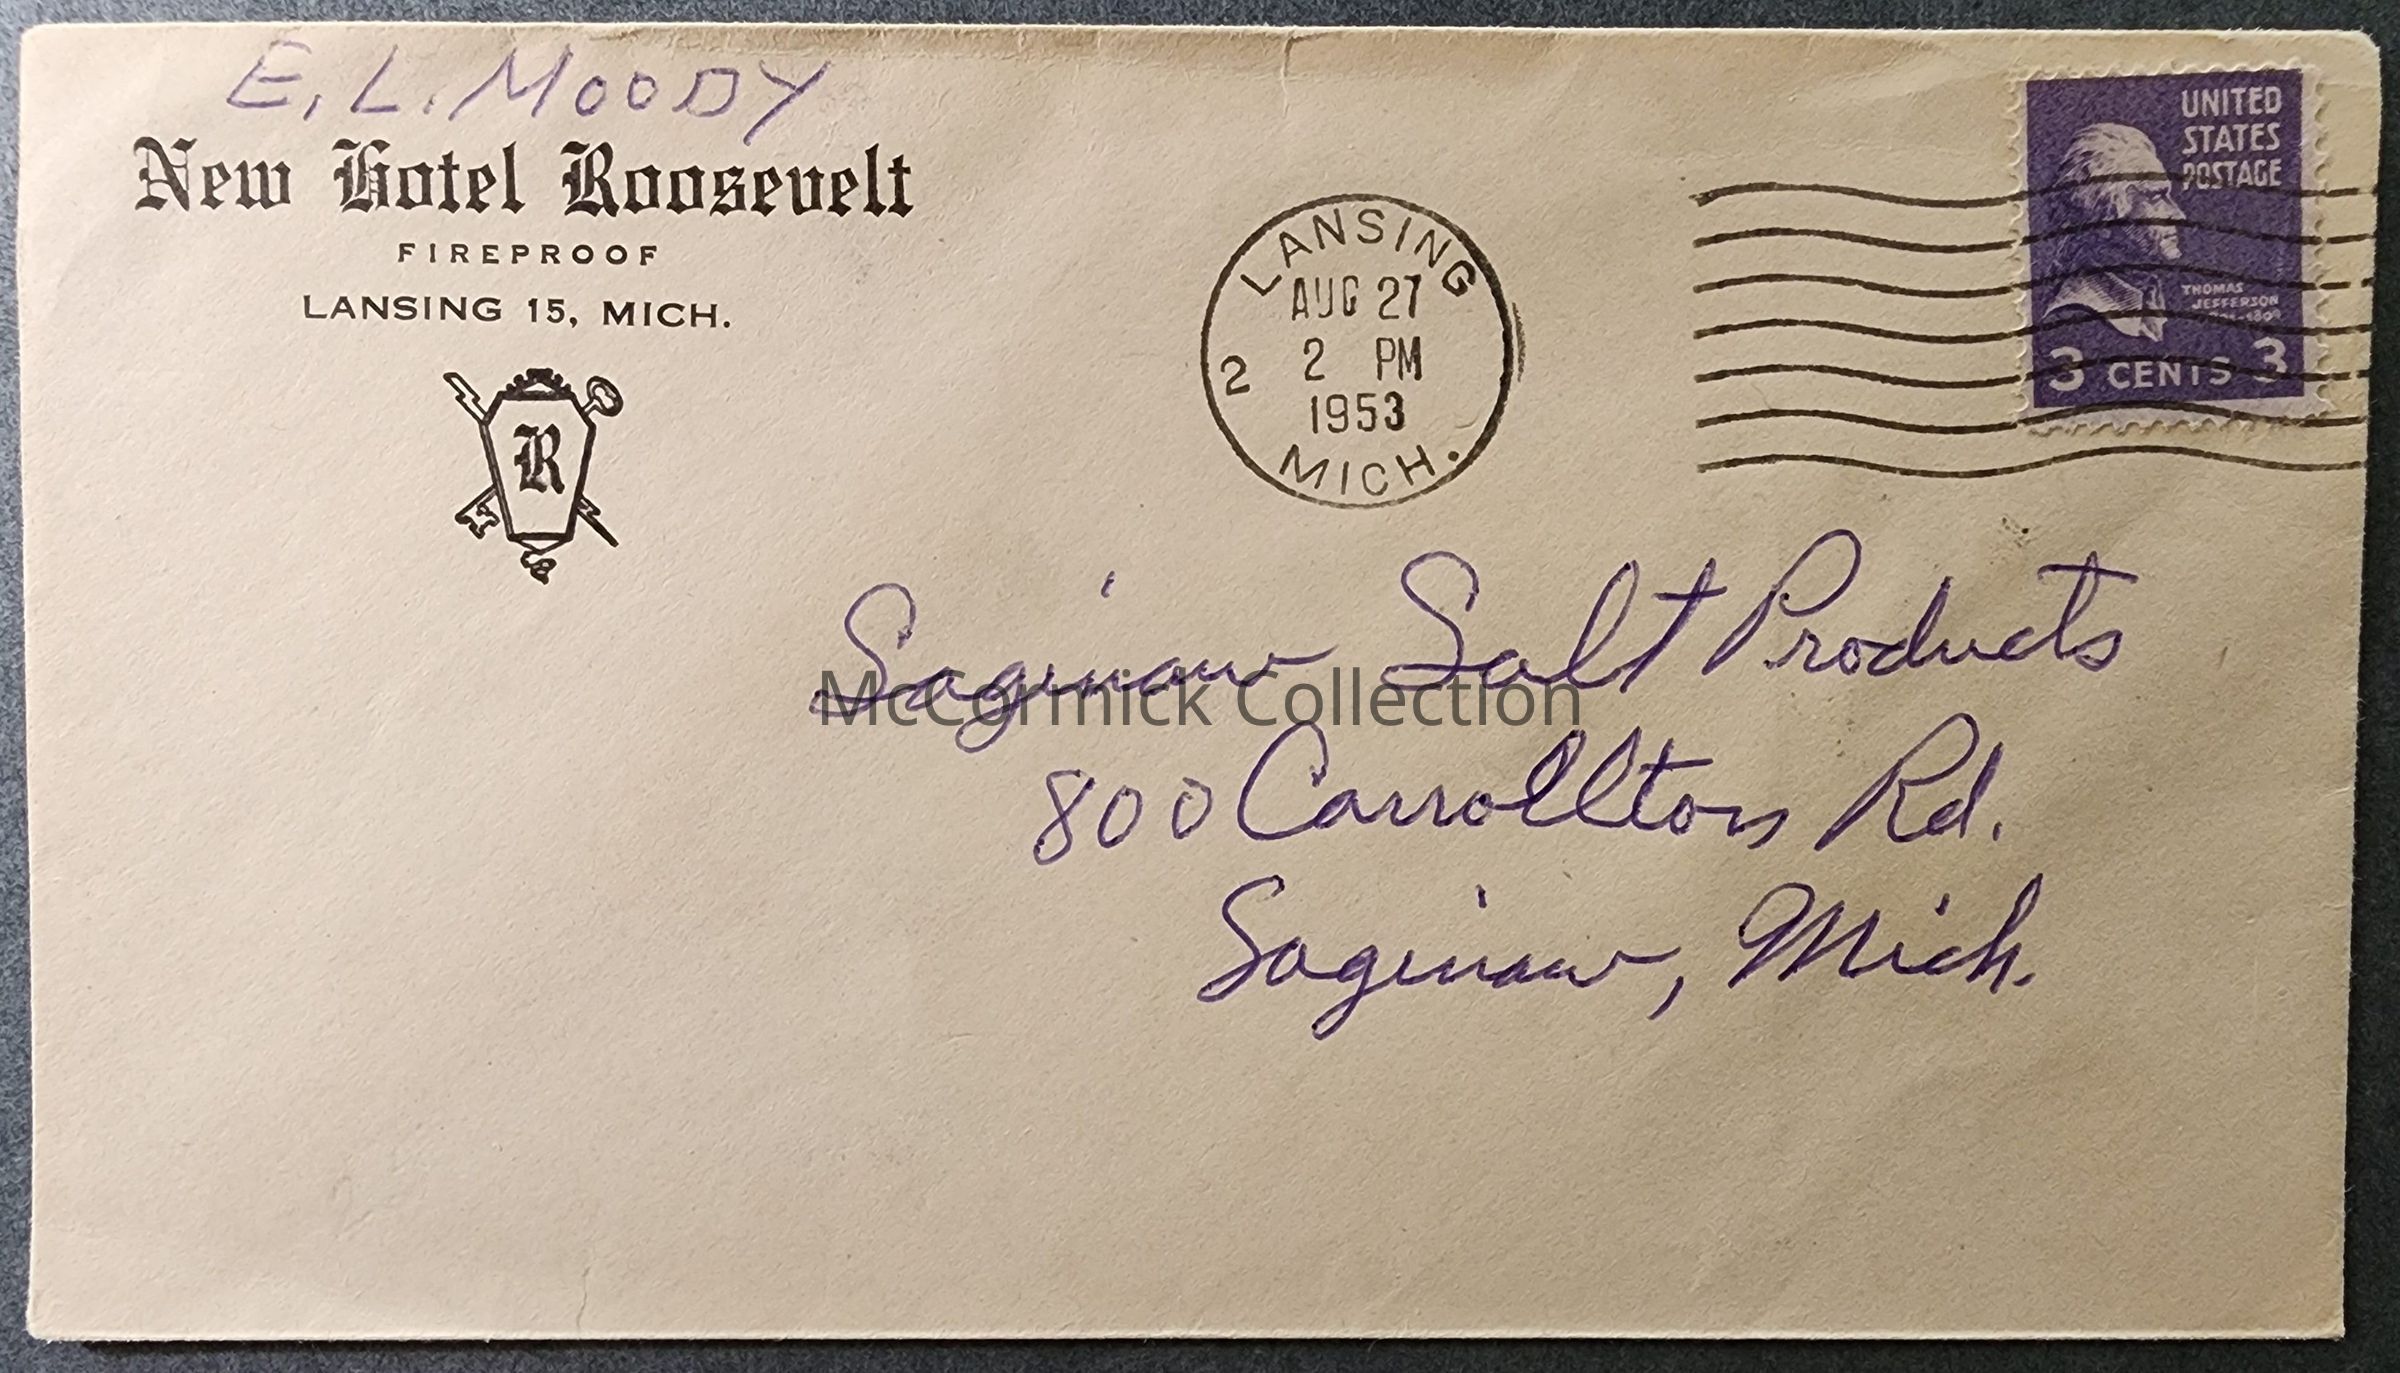 E. L. MOODY
New Hotel Roosevelt
FIREPROOF
LANSING 15, MICH.
R
LANSING
AUG 27
2 2 PM
1953
MICH.
UNITED
STATES
POSTAGE
THOMAS
JEFFERSON
3 CENTS 3
Saginaw Salt Products
McCormick Collection
800 Carrollton Rd.
Saginaw, Mich.